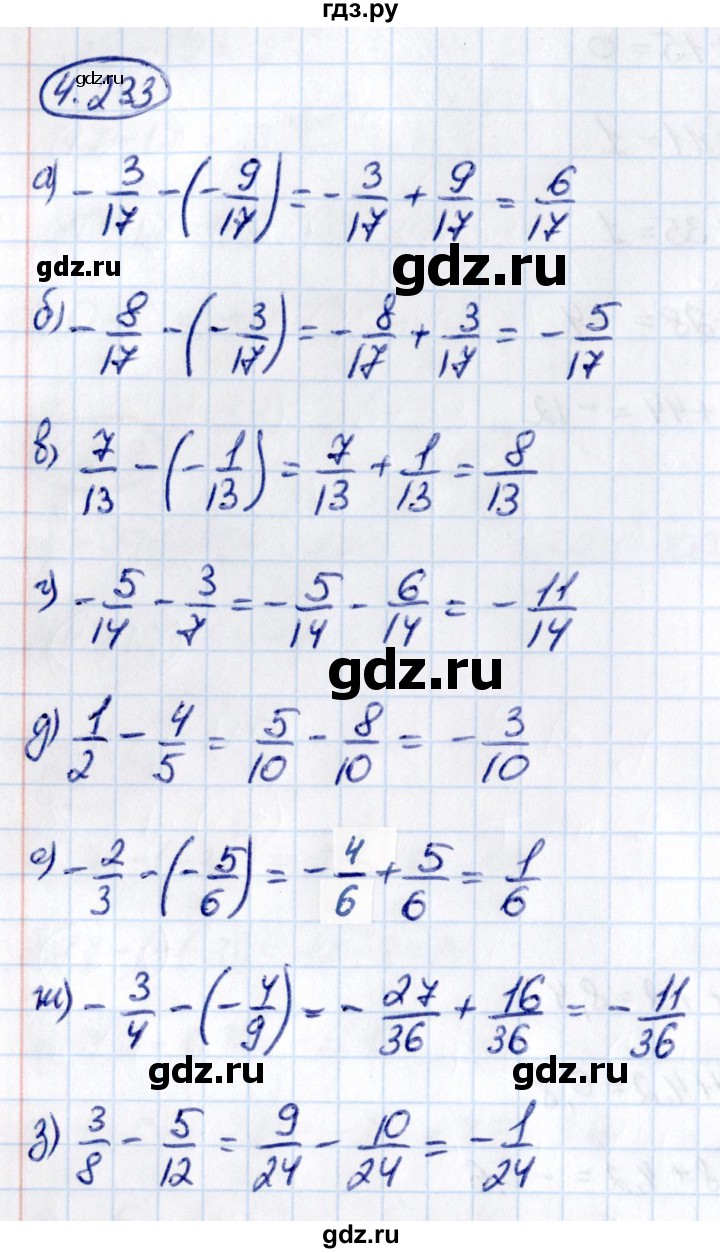 гдз.ру
gdz.ru
4.233
а) - 3/17 - (- 9/17) = - 3/17 + 9/17 = 6/17
gdz.ru
gdz.ru
б) - 8/17 - (- 3/17) = - 8/17 + 3/17 = - 5/17
в) 7/13 - (- 1/13) = 7/13 + 1/13 = 8/13
г) - 5/14 - 3/7 = - 5/14 - 6/14 = - 11/14
gdz.ru
д) 1/2 - 4/5 = 5/10 - 8/10 = - 3/10
е) - 2/3 - (- 5/6) = - 4/6 + 5/6 = 1/6
ж) - 3/4 - (- 4/9) = - 27/36 + 16/36 = - 11/36
gdz.ru
gdz.ru
з) 3/8 - 5/12 = 9/24 - 10/24 = - 1/24
gdz.ru